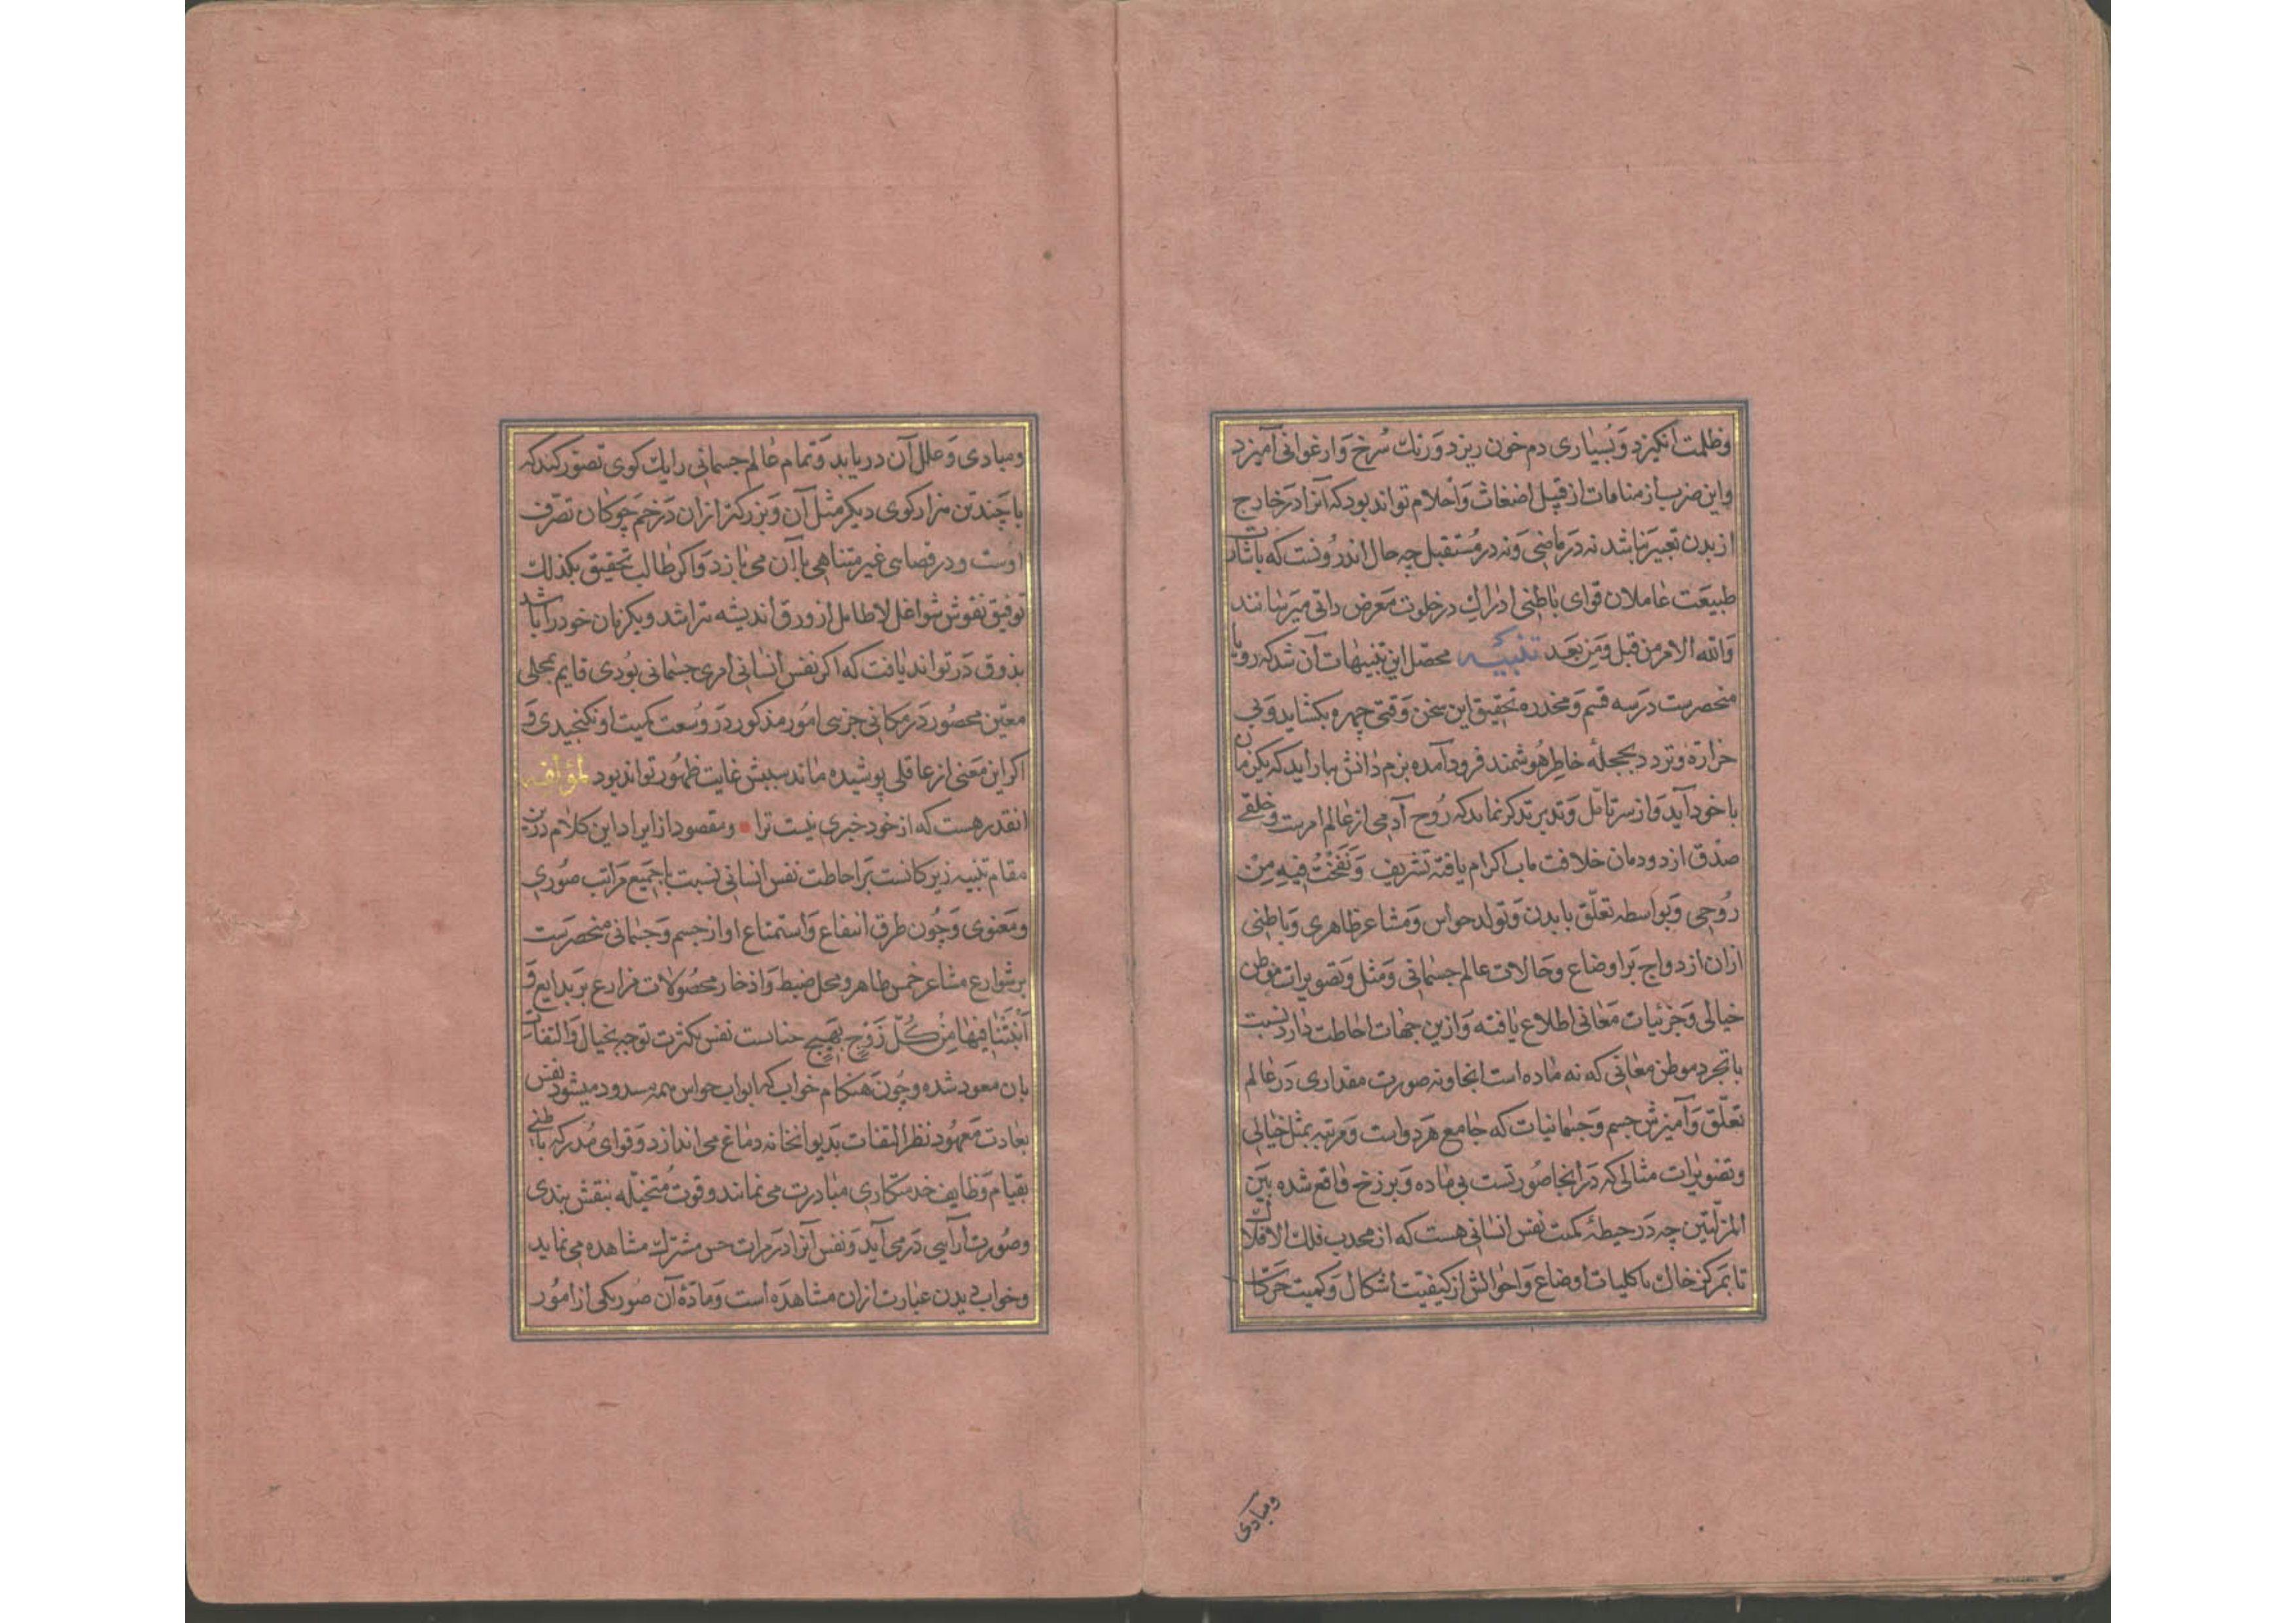 وظلمت انکیزد وبسیاری دم خون ریزد ورنك سرخ وارغوانی آمیزد
واین ضرب از منامات از قبیل اضغاث واحلام تواند بود که آنرا در خارج
از بدن تعبیر نباشد نه در ماضی ونه در مستقبل چه حال اندرونست که باشات
طبیعت عاملان قوای باطنی ادراك در خلوت معرض داتی میرسانند
ولله الامر من قبل ومن بعد تنبیه محصل این تنبیهات آن شد که رویا
منحصرست در سه قسم ومخدره تحقیق این سخن وقتی چهره بکشاید وبی
حرارة وتردد بحجلهٔ خاطر هوشمند فرود آمده بزم دانش بیاراید که یکزمان
با خود آید واز سر تامل وتدبر تذکر نماید که روح آدمی از عالم امرست وخلفی
صدق از دودمان خلافت ماب اکرام یافته تشریف ونفخت فیه من
روحی وبواسطه تعلق با بدن وتولد حواس ومشاعر ظاهری وباطنی
ازان ازدواج بر اوضاع وحالات عالم جسمانی ومثل وتصویرات موطن
خیالی وجزئیات معانی اطلاع یافته وازین جهات احاطت دارد نسبت
با تجرد موطن معانی که نه ماده است انجا ونه صورت مقداری در عالم
تعلق وآمیزش جسم وجسمانیات که جامع هر دو است ومرتبه بمثل خیالی
وتصویرات مثالی که در انجا صورتست بی ماده وبرزخ واقع شده بین
المزلتین چه در حیطهٔ نفس انسانی هست که از محدب فلك الافلاك
تا بمرکز خاك با کلیات اوضاع واحوالش از کیفیت اشکال وکمیت حرکات
ومبادی
ومبادی وعلل آن دریابد وتمام عالم جسمانی را یك کوی تصور کند که
با چندین هزار کوی دیکر مثل آن وبزرکتر ازان در خم چوکان تصرف
اوست ودر فضای غیر متناهی با آن می بازد واکر طالب تحقیق بکذلك
توفیق نقوش شواغل لاطایل از ورق اندیشه بتراشد ویکزمان خود را باشد
بذوق در تواند یافت که اکر نفس انسانی امری جسمانی بودی قایم بمحلی
معین محصور در مکانی جزیی امور مذکور در وسعت کمیت او نکنجیدی و
اکر این معنی از عاقلی پوشیده ماند سببش غایت ظهور تواند بود لمؤلفه
انقدر هست که از خود خبری نیست ترا ومقصود از ایراد این کلام درین
مقام تنبیه زیرکانست بر احاطت نفس انسانی نسبت با جمیع مراتب صوری
ومعنوی وچون طرق انتفاع واستمتاع او از جسم وجسمانی منحصرست
بر شوارع مشاعر خمس ظاهر ومحل ضبط واذخار محصولات مزارع بر بدایع و
انبتنا فیها من کل زوج بهیج خیالست نفس بکثرت توجه بخیال والتفات
بان معود شده وچون هنکام خواب که ابواب حواس همه مسدود میشود نفس
بعادت معهود نظر التفات بدیوانخانه دماغ می اندازد وقوای مدرکه باطنی
بقیام وظایف خدمتکاری مبادرت می نمایند وقوت متخیله بنقش بندی
وصورت آرایی در می آید ونفس آنرا در مرات حس مشترك مشاهده می نماید
وخواب دیدن عبارت ازان مشاهده است ومادهٔ آن صور یکی از امور